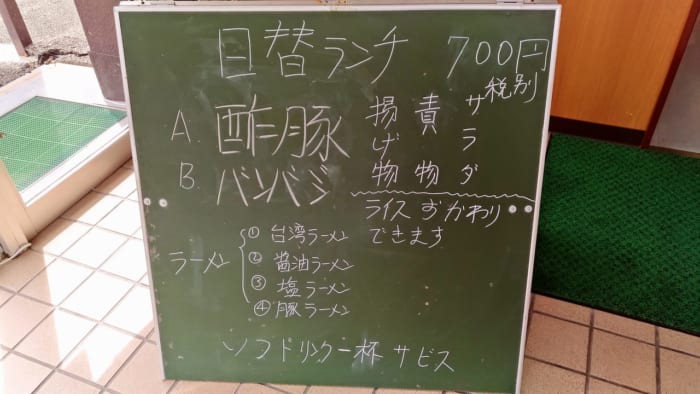 日替ランチ 700円
税別
A. 酢豚
B. バンバジ
揚げ物
責物
サラダ
ライスおかわり
できます
ラーメン
① 台湾ラーメン
② 醤油ラーメン
③ 塩ラーメン
④ 豚ラーメン
ソフドリンク一杯サビス